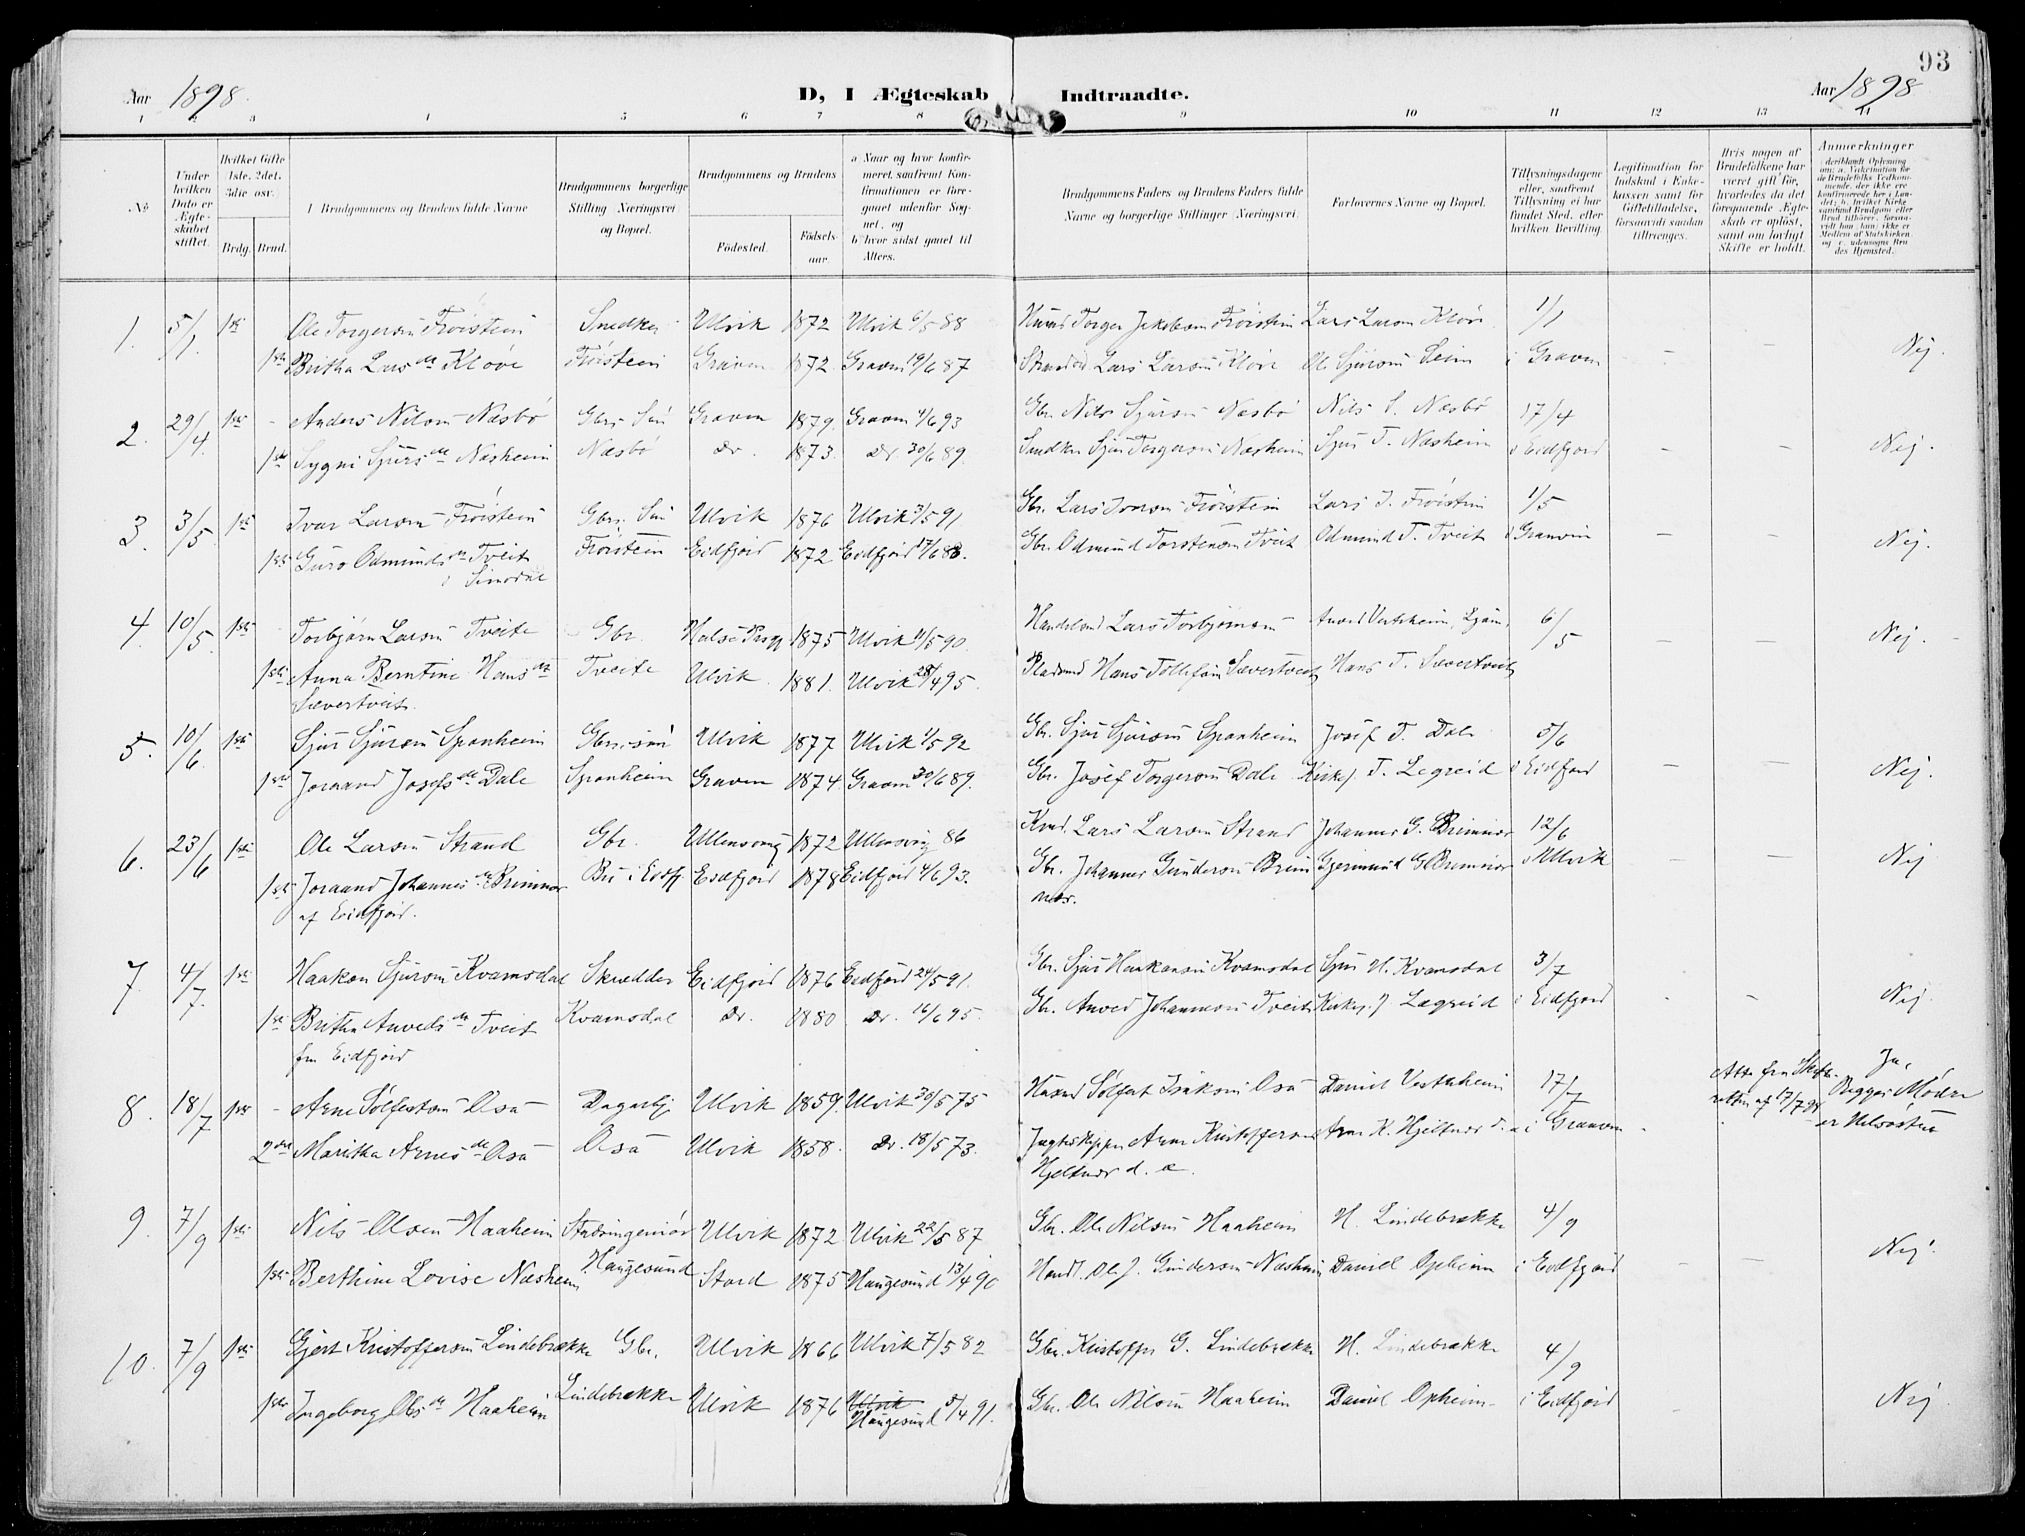 93
Aar 1898.
D, I Ægteskab Indtraadte.
Aar 1898
1 2 3 4 5 6 7 8 9 10 11 12 13 14
No
Under hvilken Dato er Ægteskabet stiftet.
Hvilket Gifte 1ste. 2det. 3die osv.
Brdg. Brud.
I Brudgommens og Brudens fulde Navne
Brudgommens borgerlige Stilling Næringsvei og Bopæl.
Brudgommens og Brudens
Fødested.
Fødsels-aar.
a Naar og hvor konfirmeret, saafremt Konfirmationen er foregaaet udenfor Sognet, og
b hvor sidst gaaet til Alters.
Brudgommens Faders og Brudens Faders fulde Navne og borgerlige Stillinger (Næringsvei).
Forlovernes Navne og Bopæl.
Tillysningsdagene eller, saafremt Tillysning ei har fundet Sted, efter hvilken Bevilling.
Legitimation for Indskud i Enkekassen samt for Giftetilladelse, forsaavidt saadan tiltrænges.
Hvis nogen af Brudefolkene har været gift før, hvorledes da det foregaaende Ægteskab er opløst, samt om lovligt Skifte er holdt.
Anmærkninger
1. 5/1. 1ste Ole Torgersen Frøistein Snedker Ulvik 1872 Ulvik 6/5 88 Husmd Torger Jakobsen Frøistein Lars Larsen Kløve 1/1
1ste Britha Larsdtr Kløve Frøistein Graven 1872. Graven 19/6 87 Lars Larsen Kløve Ole Sjursen Seim i Graven - - Nej.
2. 29/4. 1ste - Anders Nilsen Næsbø Gbrs. Søn Graven 1879. Graven 4/6 93 Gbr. Nils Sjursen Næsbø Nils S. Næsbø 17/4
1ste Sygni Sjursdtr Næsheim Næsbø Do. 1873. Do. 30/6 89. Snedker Sjur Torgersen Næsheim Sjur T. Næsheim i Eidfjord - - Nej.
3. 3/5 1ste Ivar Larsen Frøistein Gbrs. Søn Ulvik 1876 Ulvik 3/5 91 Gbr. Lars Frøistein Lars I. Frøistein 1/5
1ste Guro Odmundsdtr Tveit Frøistein Eidfjord 1872 Eidfjord 17/6 88. Gbr. Odmund Torstensen Tveit Odmund T. Tveit i Granvin - - Nej.
i Simodal
4. 10/5. 1ste Torbjørn Larsen Tveite Gbr. 1875 Ulvik 11/5 90. Lars Torbjørnsen 6/5 - - Nej. -
1ste Anna Berntine Hansdtr Tveite Ulvik 1881. Ulvik 28/4 95. Hans Tollefsen Sævertveit Hans T. Sævertveit
Sævertveit.
5. 10/6. 1ste Sjur Sjursen Spanheim Gbrs. søn Ulvik 1877 Ulvik 1/5 92 Gbr. Sjur Sjursen Spanheim Josef T. Dale 5/6
1ste Joraand Josefsdtr Dale Spanheim Graven 1874. Graven 30/6 89. Gbr. Josef Torgersen Dale Kirkes. T. Legreid i Eidfjord - - Nej.
6. 23/6 1ste Ole Larsen Strand Gbr. Ullensvang 1872 Ullensvang 86 Lars Larsen Strand Johannes G. Brimnæs 12/6
1ste Joraand Johannesdtr Brimnæs Bu i Eidfj. Eidfjord 1878 Eidfjord 4/6 93. Gbr. Johannes Gundersen Brim- Gjermund G. Brimnæs i Ulvik - - Nej
af Eidfjord. næs.
7. 4/7. 1ste Haakon Sjursen Kvamsdal Skrædder Eidfjord 1876 Eidfjord 24/5 91. Gbr. Sjur Haakonsen Kvamsdal Sjur H. Kvamsdal 3/7
1ste Britha Anvedsdtr Tveit Kvamsdal Do. 1880 Do. 16/6 95. Gbr. Anved Johannesen Tveit Kirkes. J. Lægreid i Eidfjord - - Nej.
fra Eidfjord
8. 18/7 1ste - Arne Solfestsen Osa Dagarb. Ulvik 1859. Ulvik 30/5 75 Husmd Solfest Isaksen Osa Daniel Vestrheim 17/7 Atta fra Skifteretten af 17/7 98 Ja, Begges Mødre er Helsøstre
2den Maritha Arnesdtr Osa Osa Ulvik 1858. Do. 18/5 73. Jagteskipper Arne Kristoffersen Arne K. Hjeltnæs d. æ. i Graven -
Hjeltnæs d. æ.
9. 7/9 1ste Nils Olsen Haaheim Stadsingeniør Ulvik 1872 Ulvik 22/5 87 Gbr. Ole Nilsen Haaheim H. Lindebrække 4/9
1ste Berthine Lovise Næsheim Haugesund Stord 1875 Haugesund 13/4 90 Handl. Ole J. Gundersen Næsheim Daniel Opheim i Eidfjord - - Nej.
10. 7/9 1ste Gjert Kristoffersen Lindebrække Gbr. Ulvik 1866 Ulvik 7/5 82 Gbr. Kristoffer G. Lindebrække H. Lindebrække 4/9
1ste Ingeborg Olsdtr Haaheim Lindebrække Ulvik 1876 Ulvik Haugesund 5/4 91. Gbr. Ole Nilsen Haaheim Daniel Opheim i Eidfjord - Nej